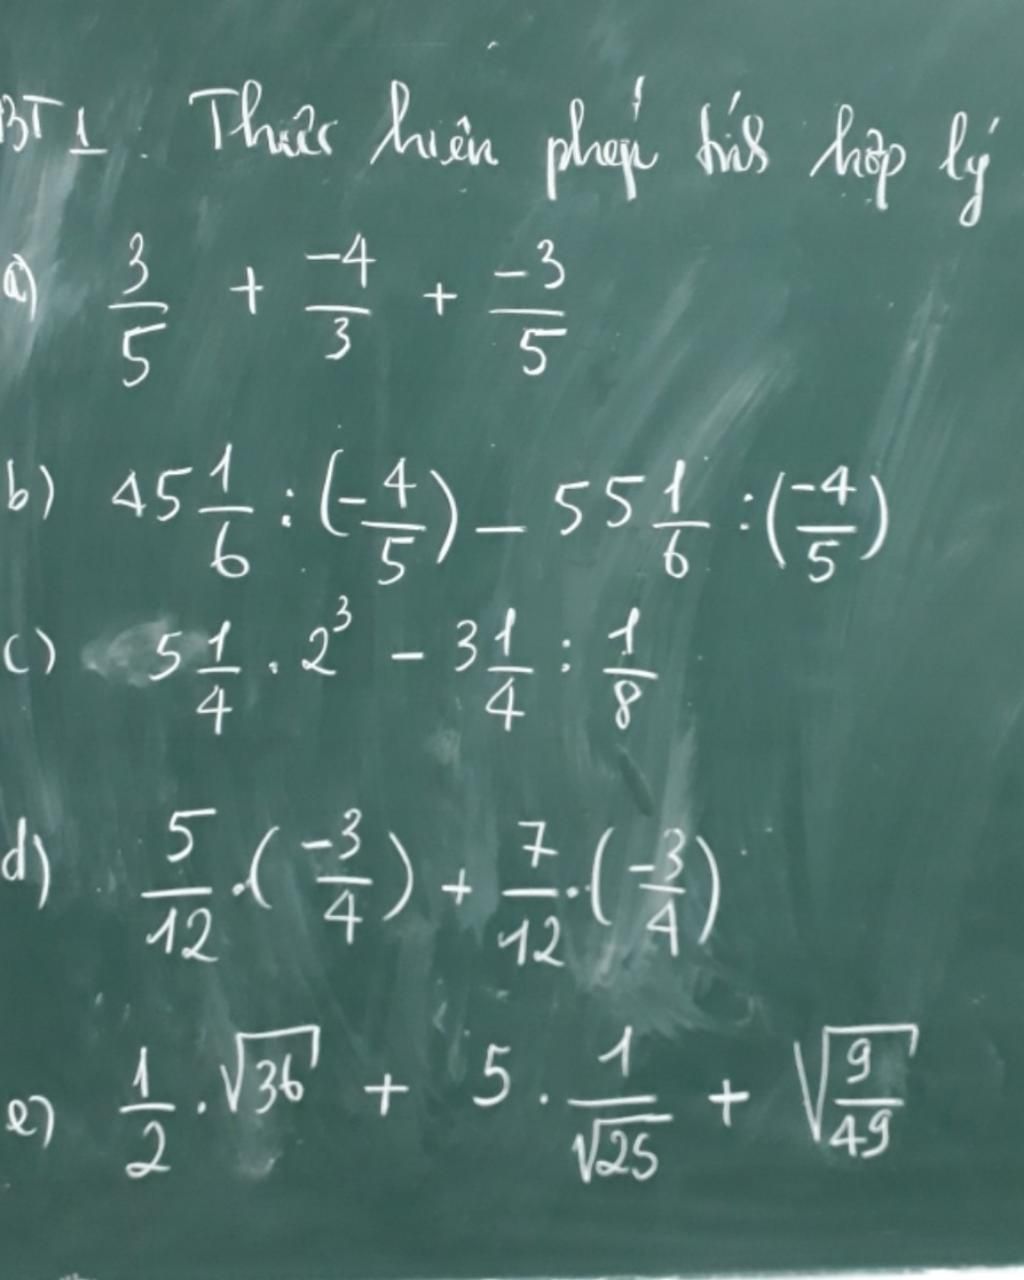 BT1. Thực hiện phép tính hợp lý
a) 3/5 + -4/3 + -3/5
b) 45 1/6 : (-4/5) - 55 1/6 : (-4/5)
c) 5 1/4 . 2³ - 3 1/4 : 1/8
d) 5/12 . (-3/4) + 7/12 . (-3/4)
e) 1/2 . √36 + 5 . 1/√25 + √(9/49)